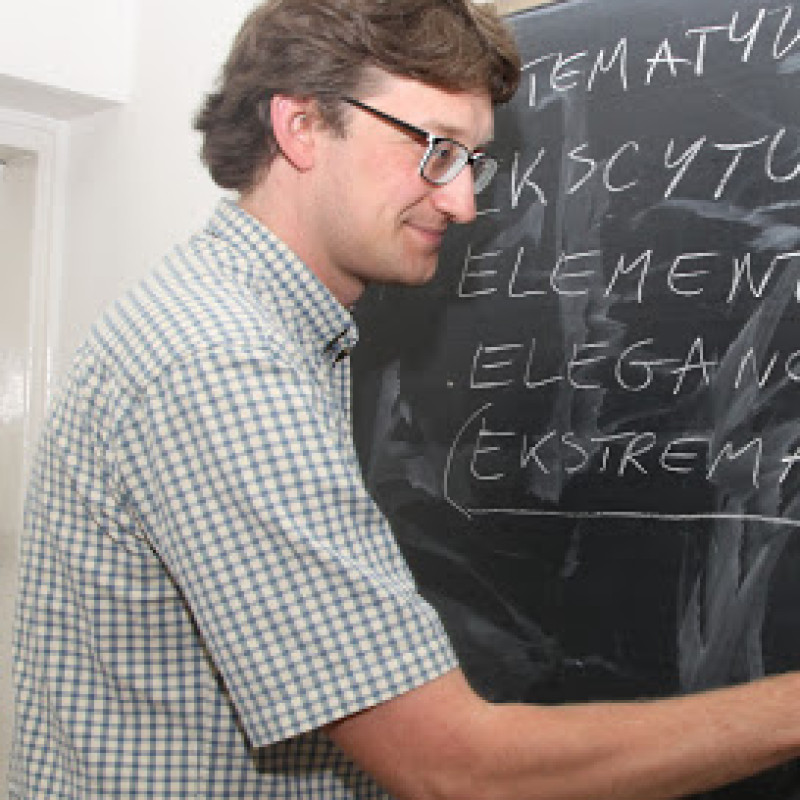 TEMATYW
EKSCYTU
ELEMENT
.ELEGANC
(EKSTREMA